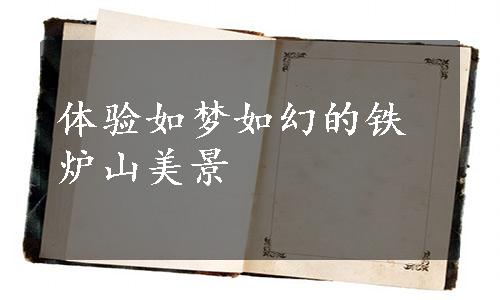 体验如梦如幻的铁
炉山美景